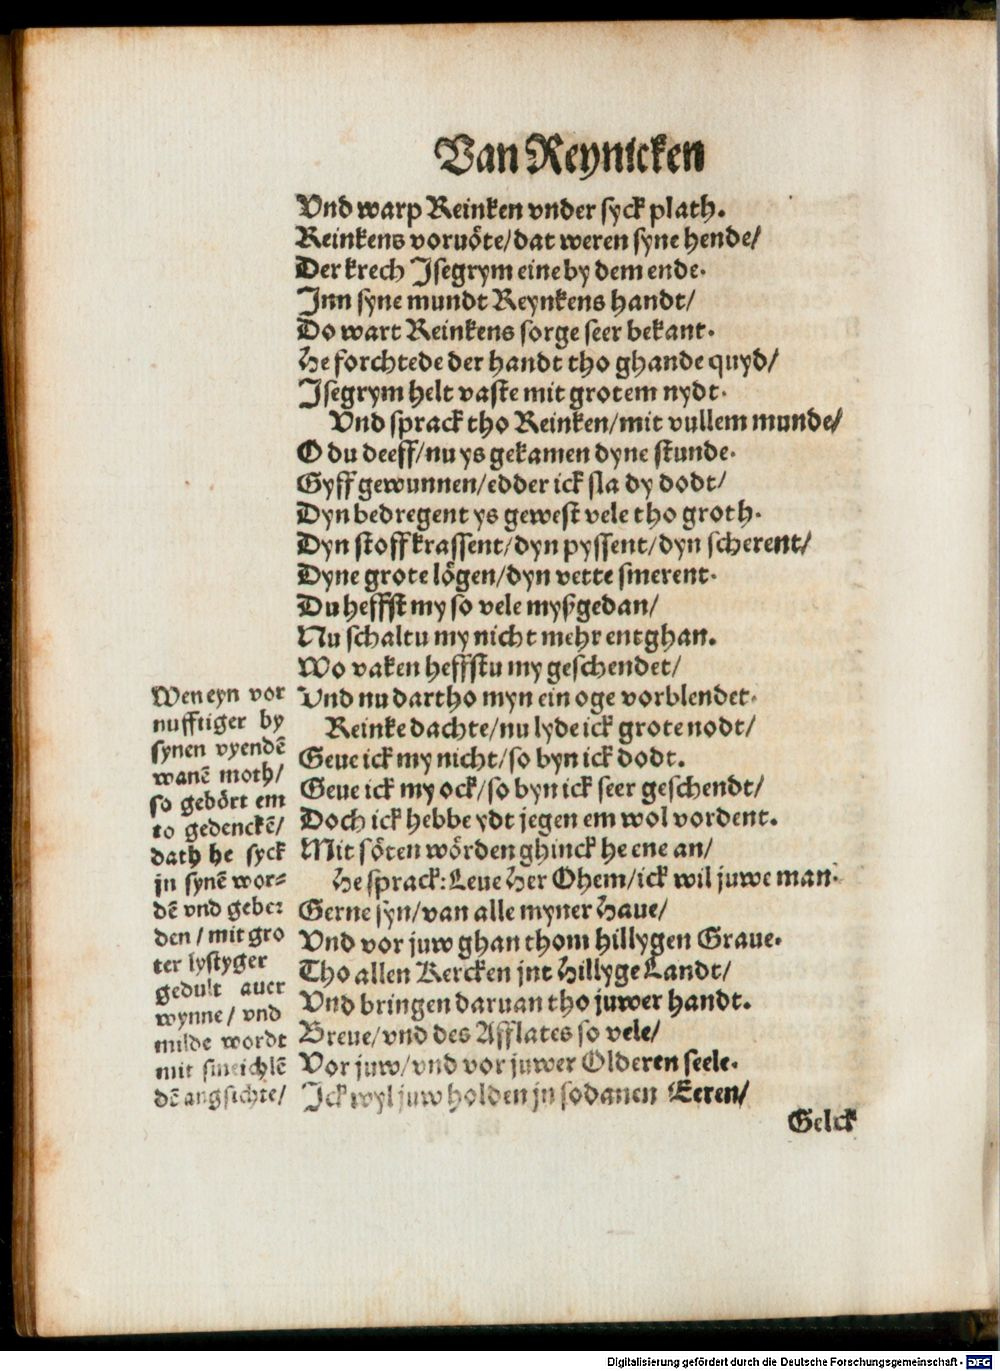 Van Reynicken
Vnd warp Reinken vnder syck plath.
Reinkens voruöte/dat weren syne hende/
Der krech Jsegrym eine by dem ende.
Jnn syne mundt Reynkens handt/
Do wart Reinkens sorge seer bekant.
He forchtede der handt tho ghande quyd/
Jsegrym helt vaste mit grotem nydt.
Vnd sprack tho Reinken/mit vullem munde/
O du deeff/nu ys gekamen dyne stunde.
Gyff gewunnen/edder ick sla dy dodt/
Dyn bedregent ys gewest vele tho groth.
Dyn stoff krassent/dyn pyssent/dyn scherent/
Dyne grote lögen/dyn vette smerent.
Du heffst my so vele myßgedan/
Nu schaltu my nicht mehr entghan.
Wo vaken heffstu my geschendet/
Vnd nu dartho myn ein oge vorblendet.
Reinke dachte/nu lyde ick grote nodt/
Geue ick my nicht/so byn ick dodt.
Geue ick my ock/so byn ick seer geschendt/
Doch ick hebbe ydt jegen em wol vordent.
Mit söten wörden ghinck he ene an/
He sprack: Leue Her Ohem/ick wil juwe man.
Gerne syn/van alle myner Haue/
Vnd vor juw ghan thom hillygen Graue.
Tho allen Kercken jnt Hillyge Landt/
Vnd bringen daruan tho juwer handt.
Breue/vnd des Afflates so vele/
Vor juw/vnd vor juwer Olderen seele.
Jck wyl juw holden jn sodanen Eeren/
Gelck
Wen eyn vor
nufftiger by
synen vyendē
wanē moth/
so gebört em
to gedenckē/
dath he syck
jn synē wor-
dē vnd geber
den/mit gro
ter lystyger
gedult auer
wynne/vnd
milde wordt
mit smeichlē
dē angsichte/
Digitalisierung gefördert durch die Deutsche Forschungsgemeinschaft - DFG